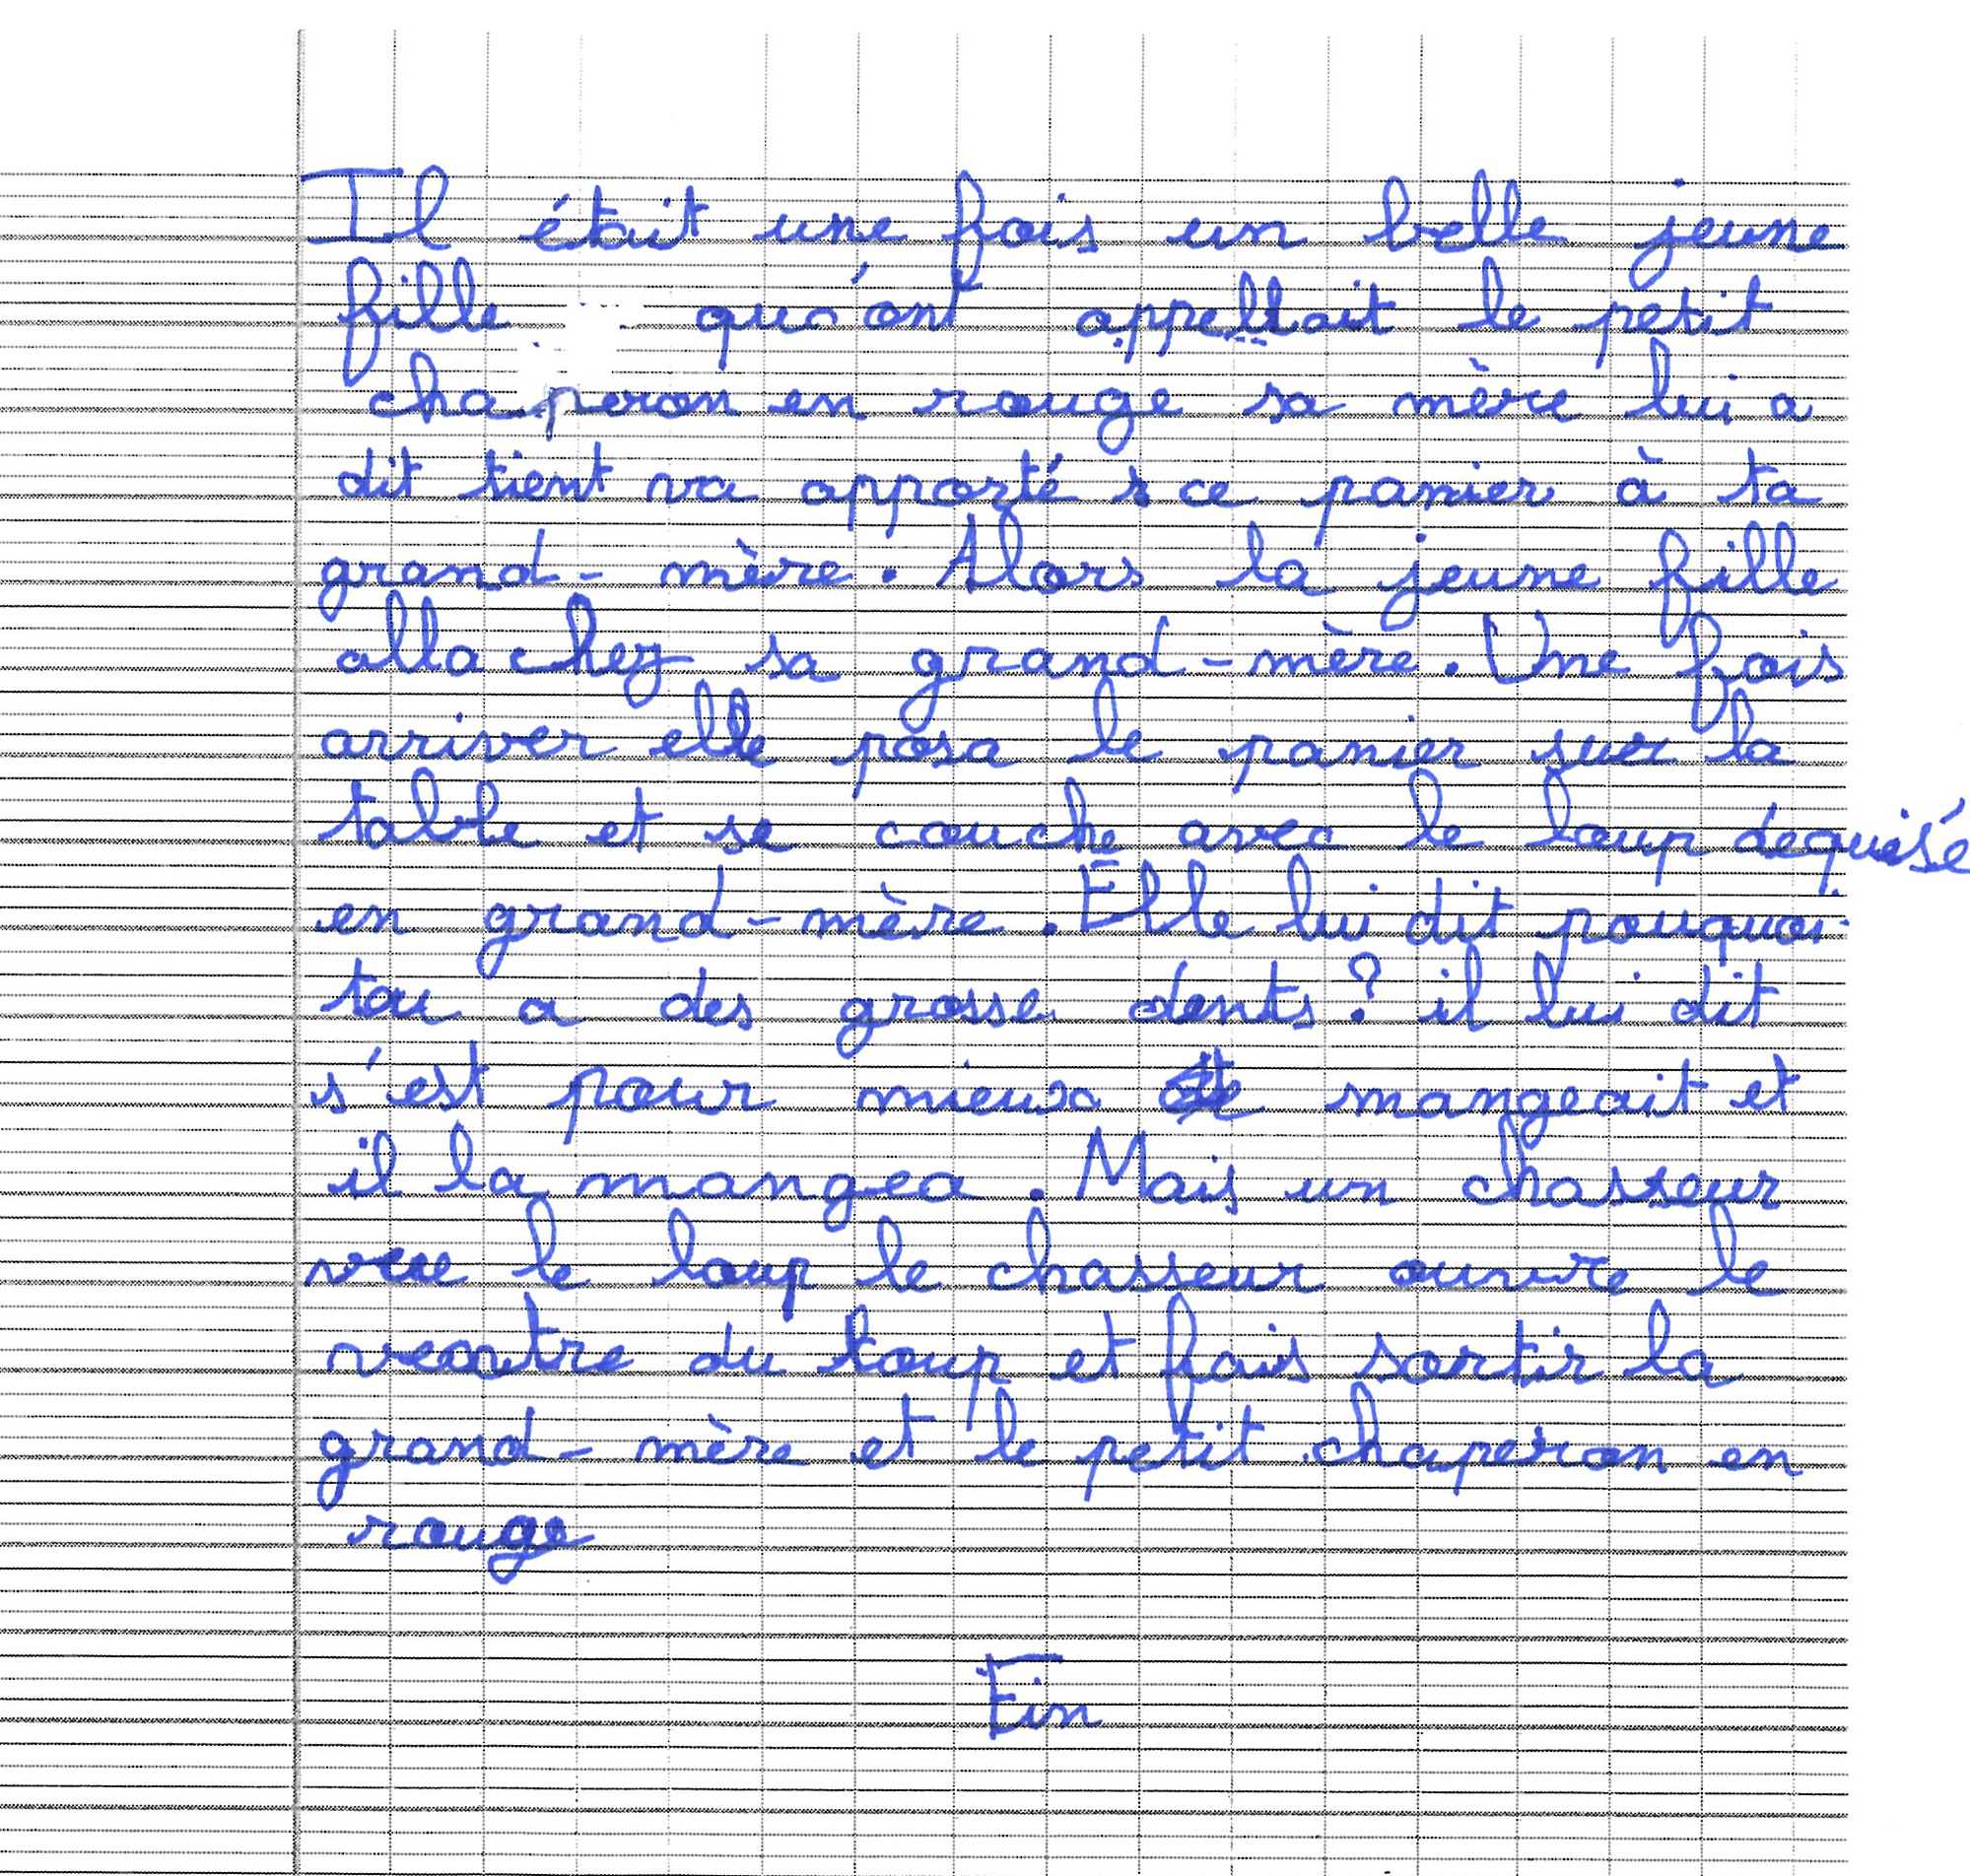 Il était une fois un belle jeune
fille qu'ont appellait le petit
chaperon en rouge sa mère lui a
dit tient va apporté ce panier à ta
grand-mère. Alors la jeune fille
alla chez sa grand-mère. Une fois
arriver elle posa le panier sur la
table et se couche avec le loup dequisé
en grand-mère. Elle lui dit pouquoi
tou a des grosse dents? il lui dit
s'est pour mieux te mangeait et
il la mangea. Mais un chasseur
vue le loup le chasseur ouvire le
ventre du loup et fais sortir la
grand-mère et le petit chaperon en
rouge
Fin